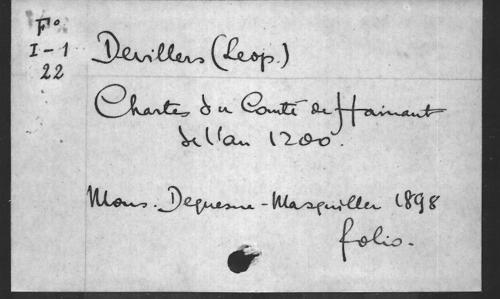 F°
I-1
22
Devillers (Leop.)
Chartes du Comté de Hainaut
de l'an 1200.
Mons. Dequesne-Masquillier 1898
folio.